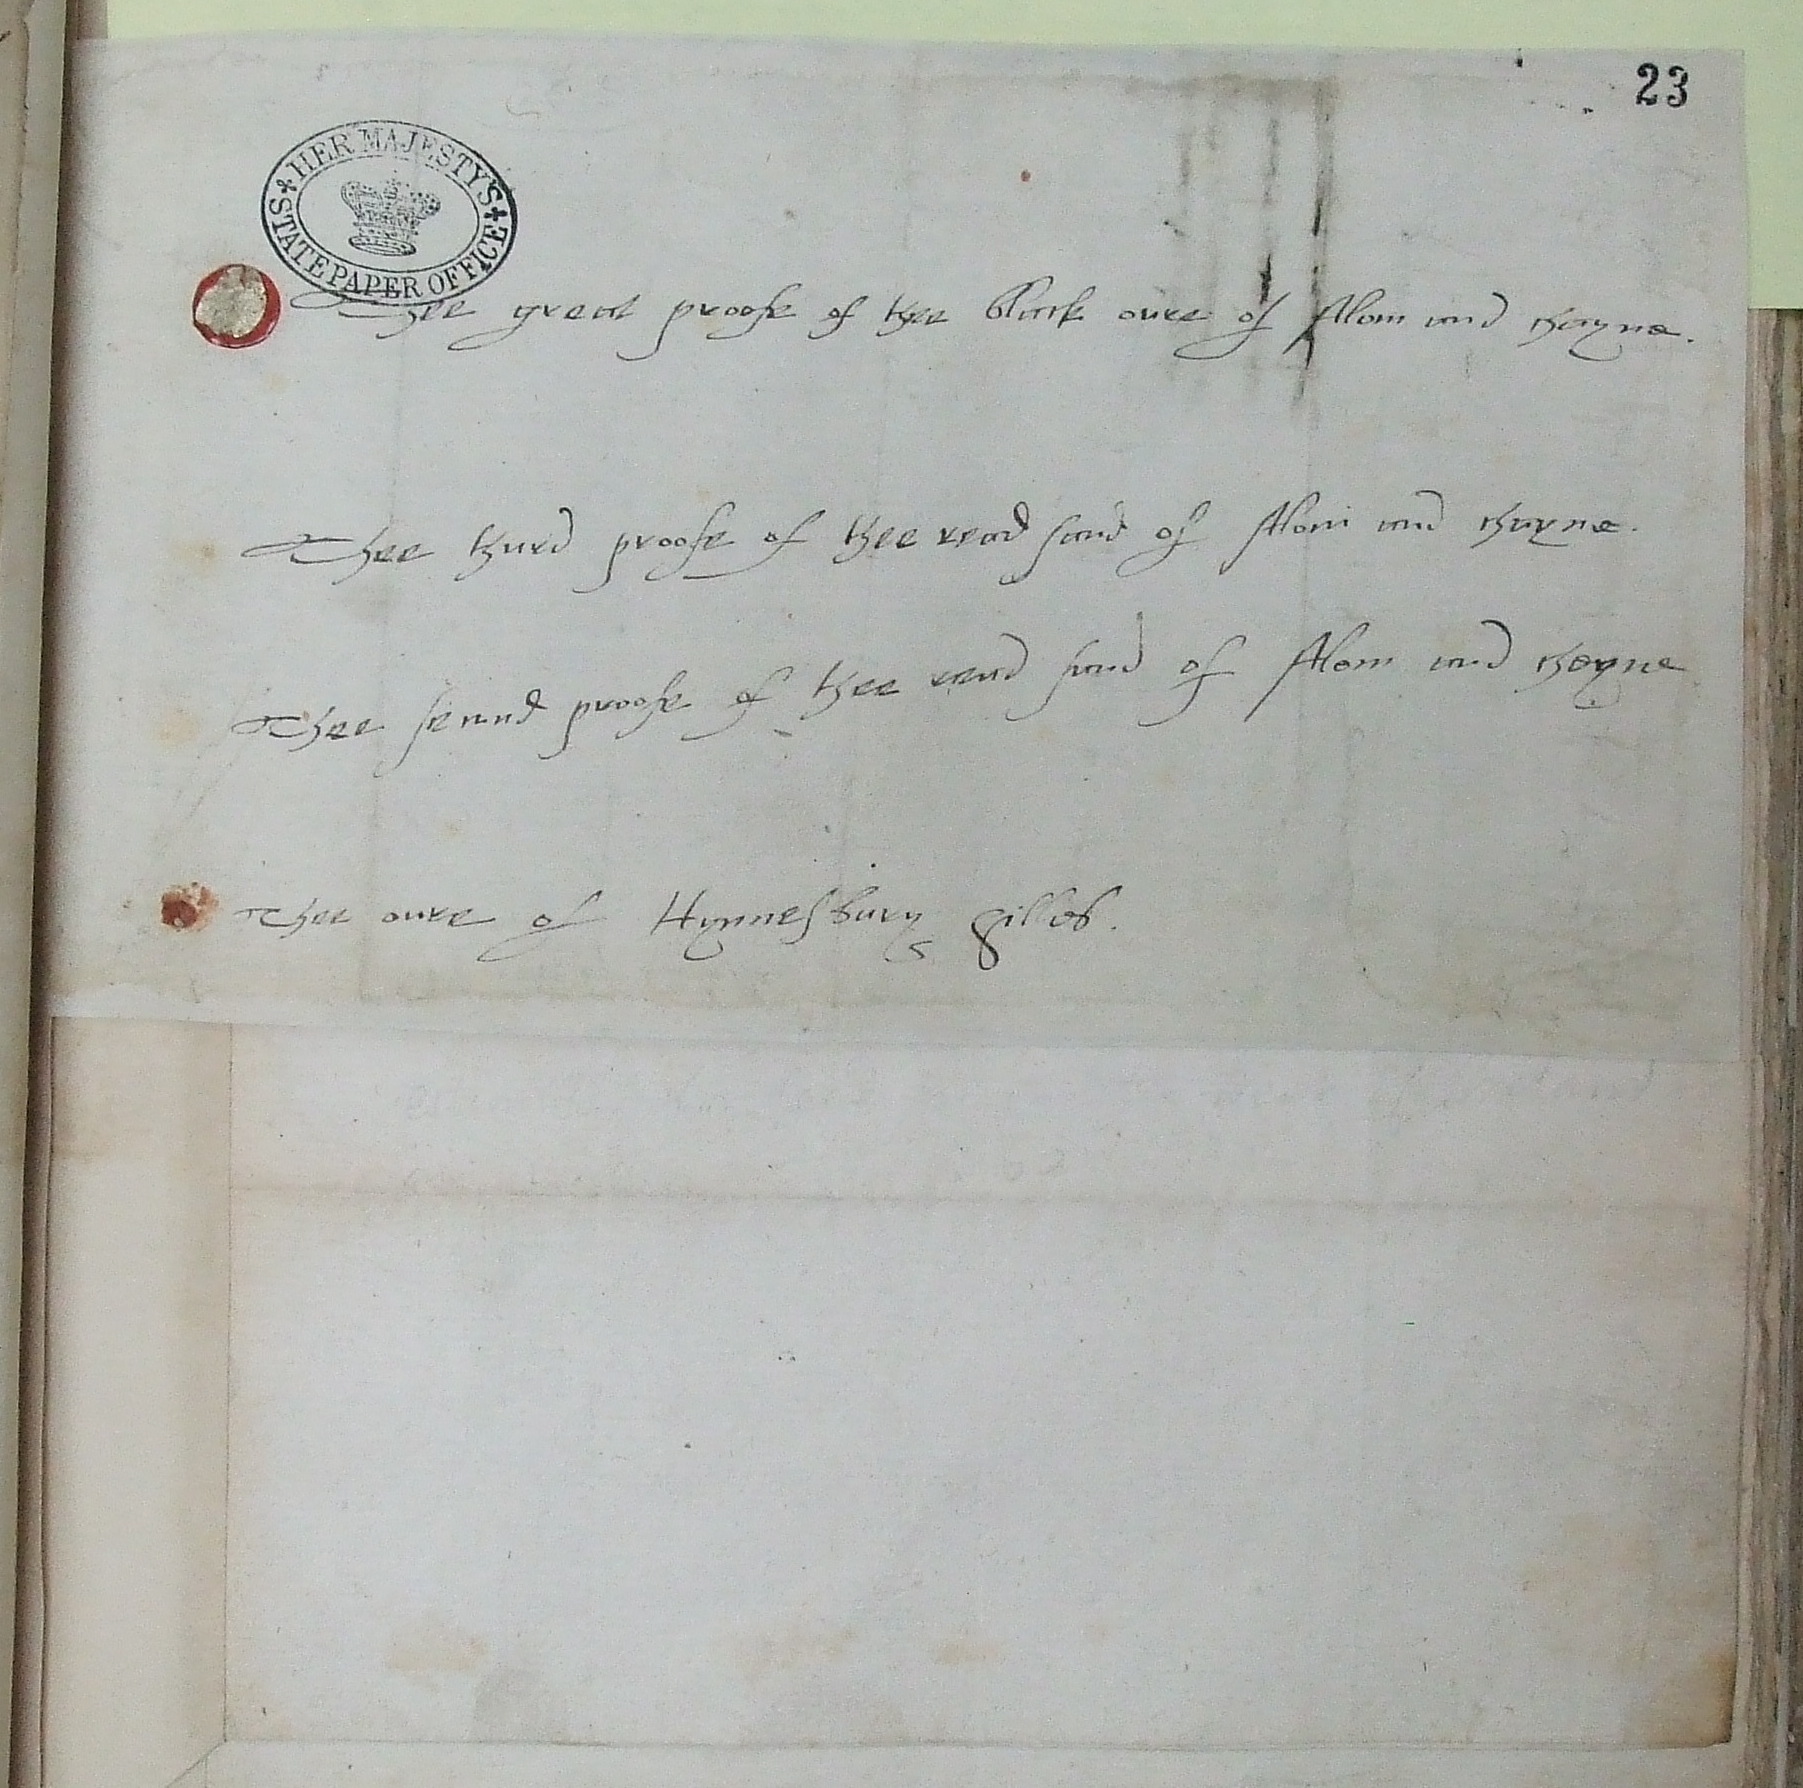 23
HER MAJESTY'S
STATE PAPER OFFICE
Thee great proofe of thee black oure of Alom and
Thee thurd proofe of thee read sand of Alom and
Thee secund proofe of thee read sand of Alom and
Thee oure of Hynnesbury